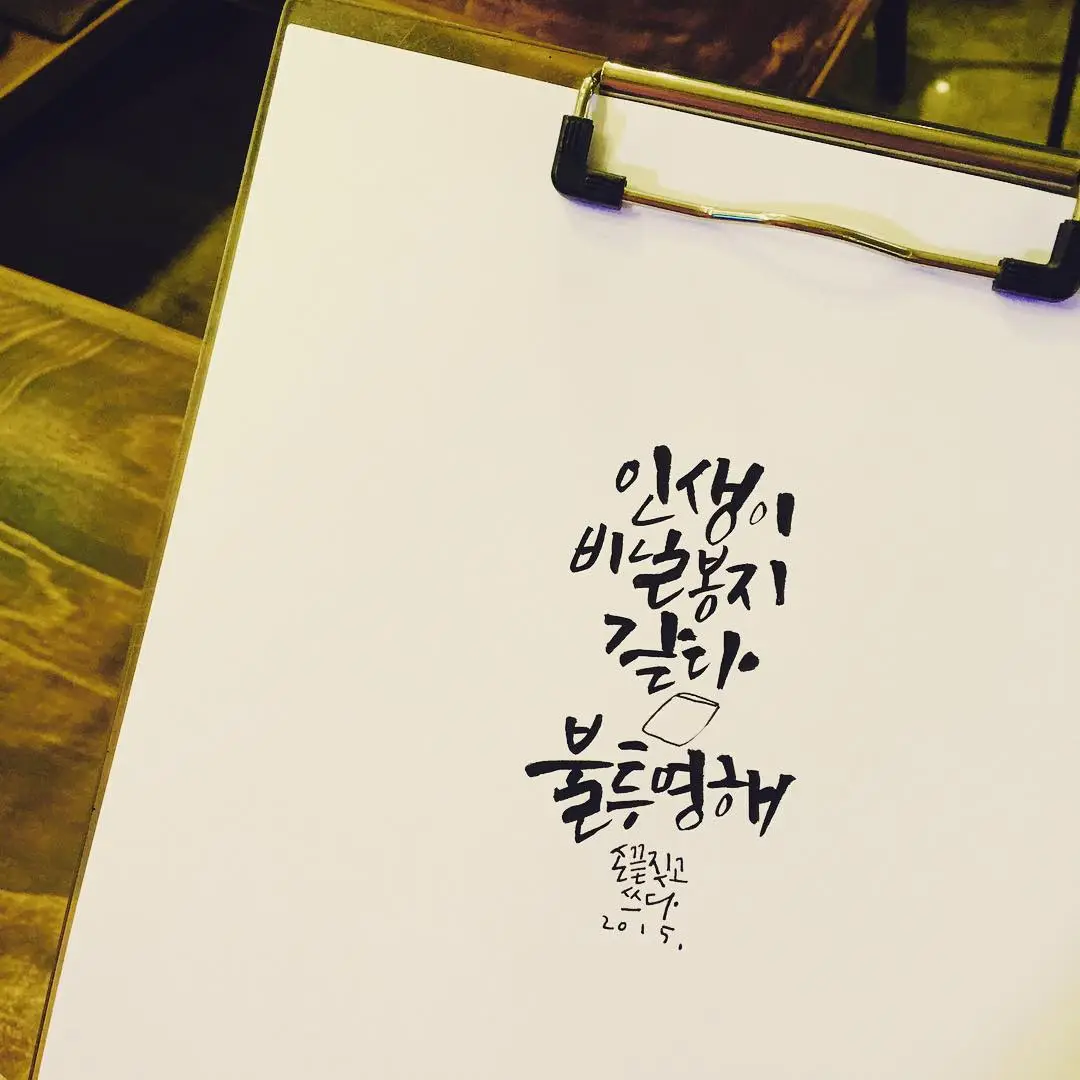 인생이
비닐봉지
같다.
불투명해
손끝짖고
쓰다.
2015.